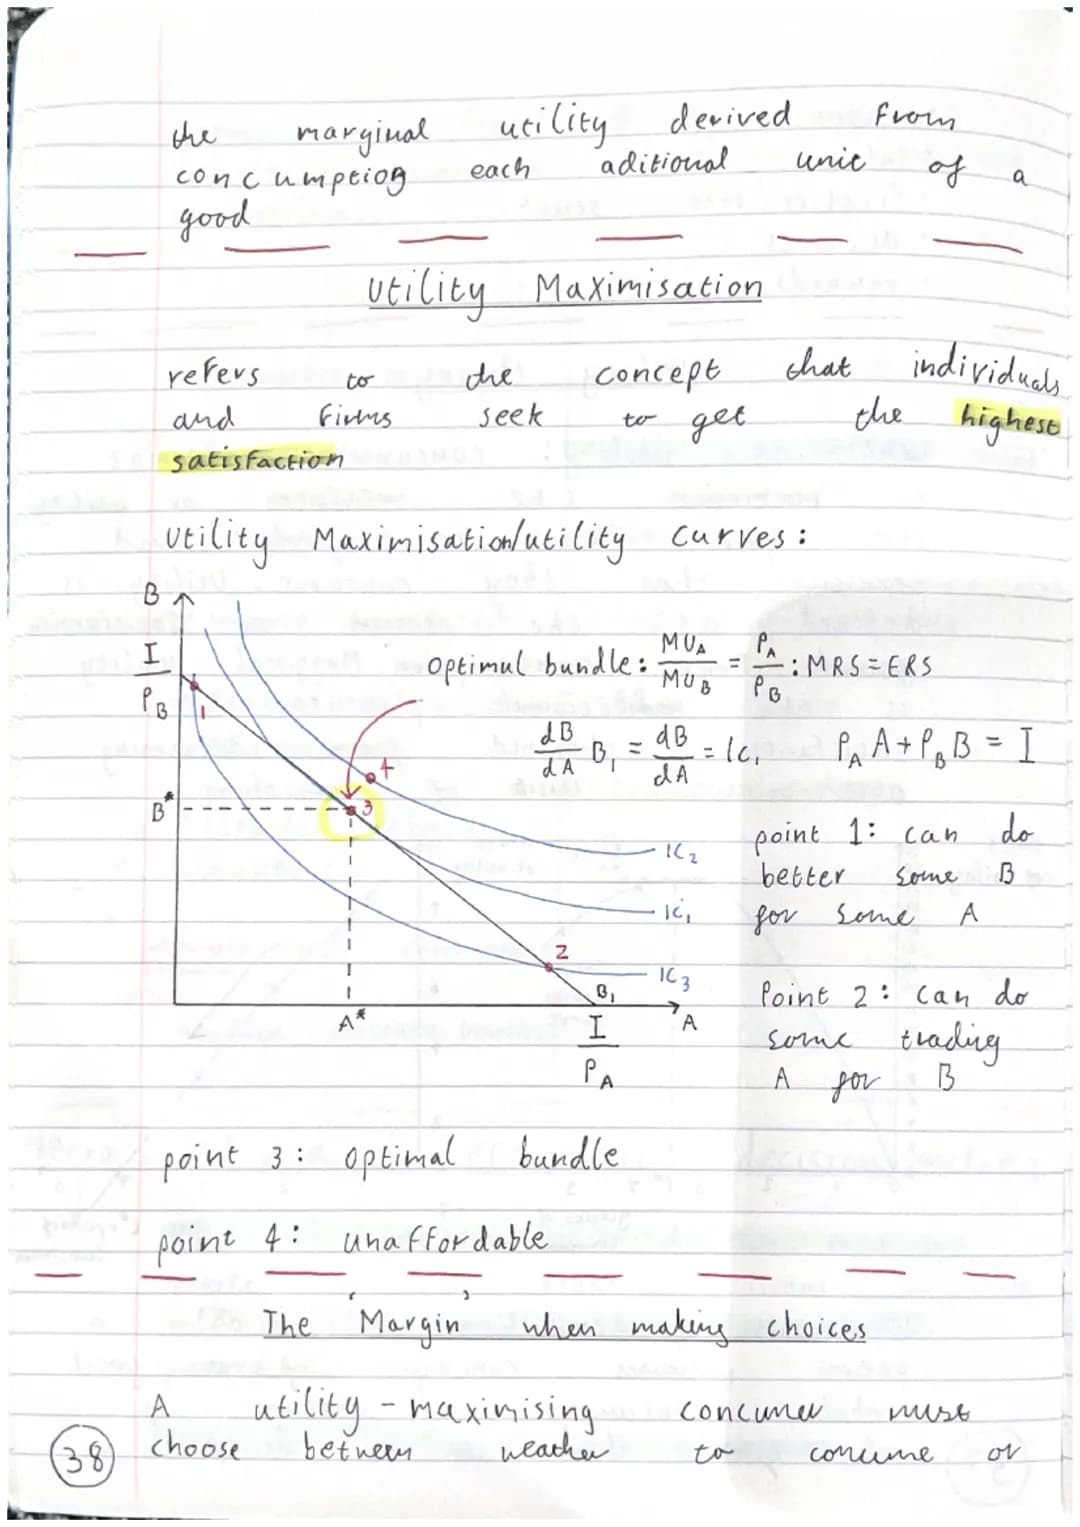 the marginal utility derived from
concumption each aditional unit of a
good
Utility Maximisation
refers to the concept that individuals
and firms seek to get the highest
satisfaction
Utility Maximisation/utility curves:
B
I
P_B
Optimal bundle: MU_A/MU_B = P_A/P_B : MRS = ERS
dB/dA B₁ = dB/dA = IC₁ P_A A + P_B B = I
1
4
3
B*
2
IC₂
IC₁
IC₃
B₁
A*
I
P_A
A
point 1: can do
better some B
for some A
Point 2: can do
some trading
A for B
point 3: optimal bundle
point 4: unaffordable
The 'Margin' when making choices
A utility-maximising concumer must
choose between weather to concume or
38